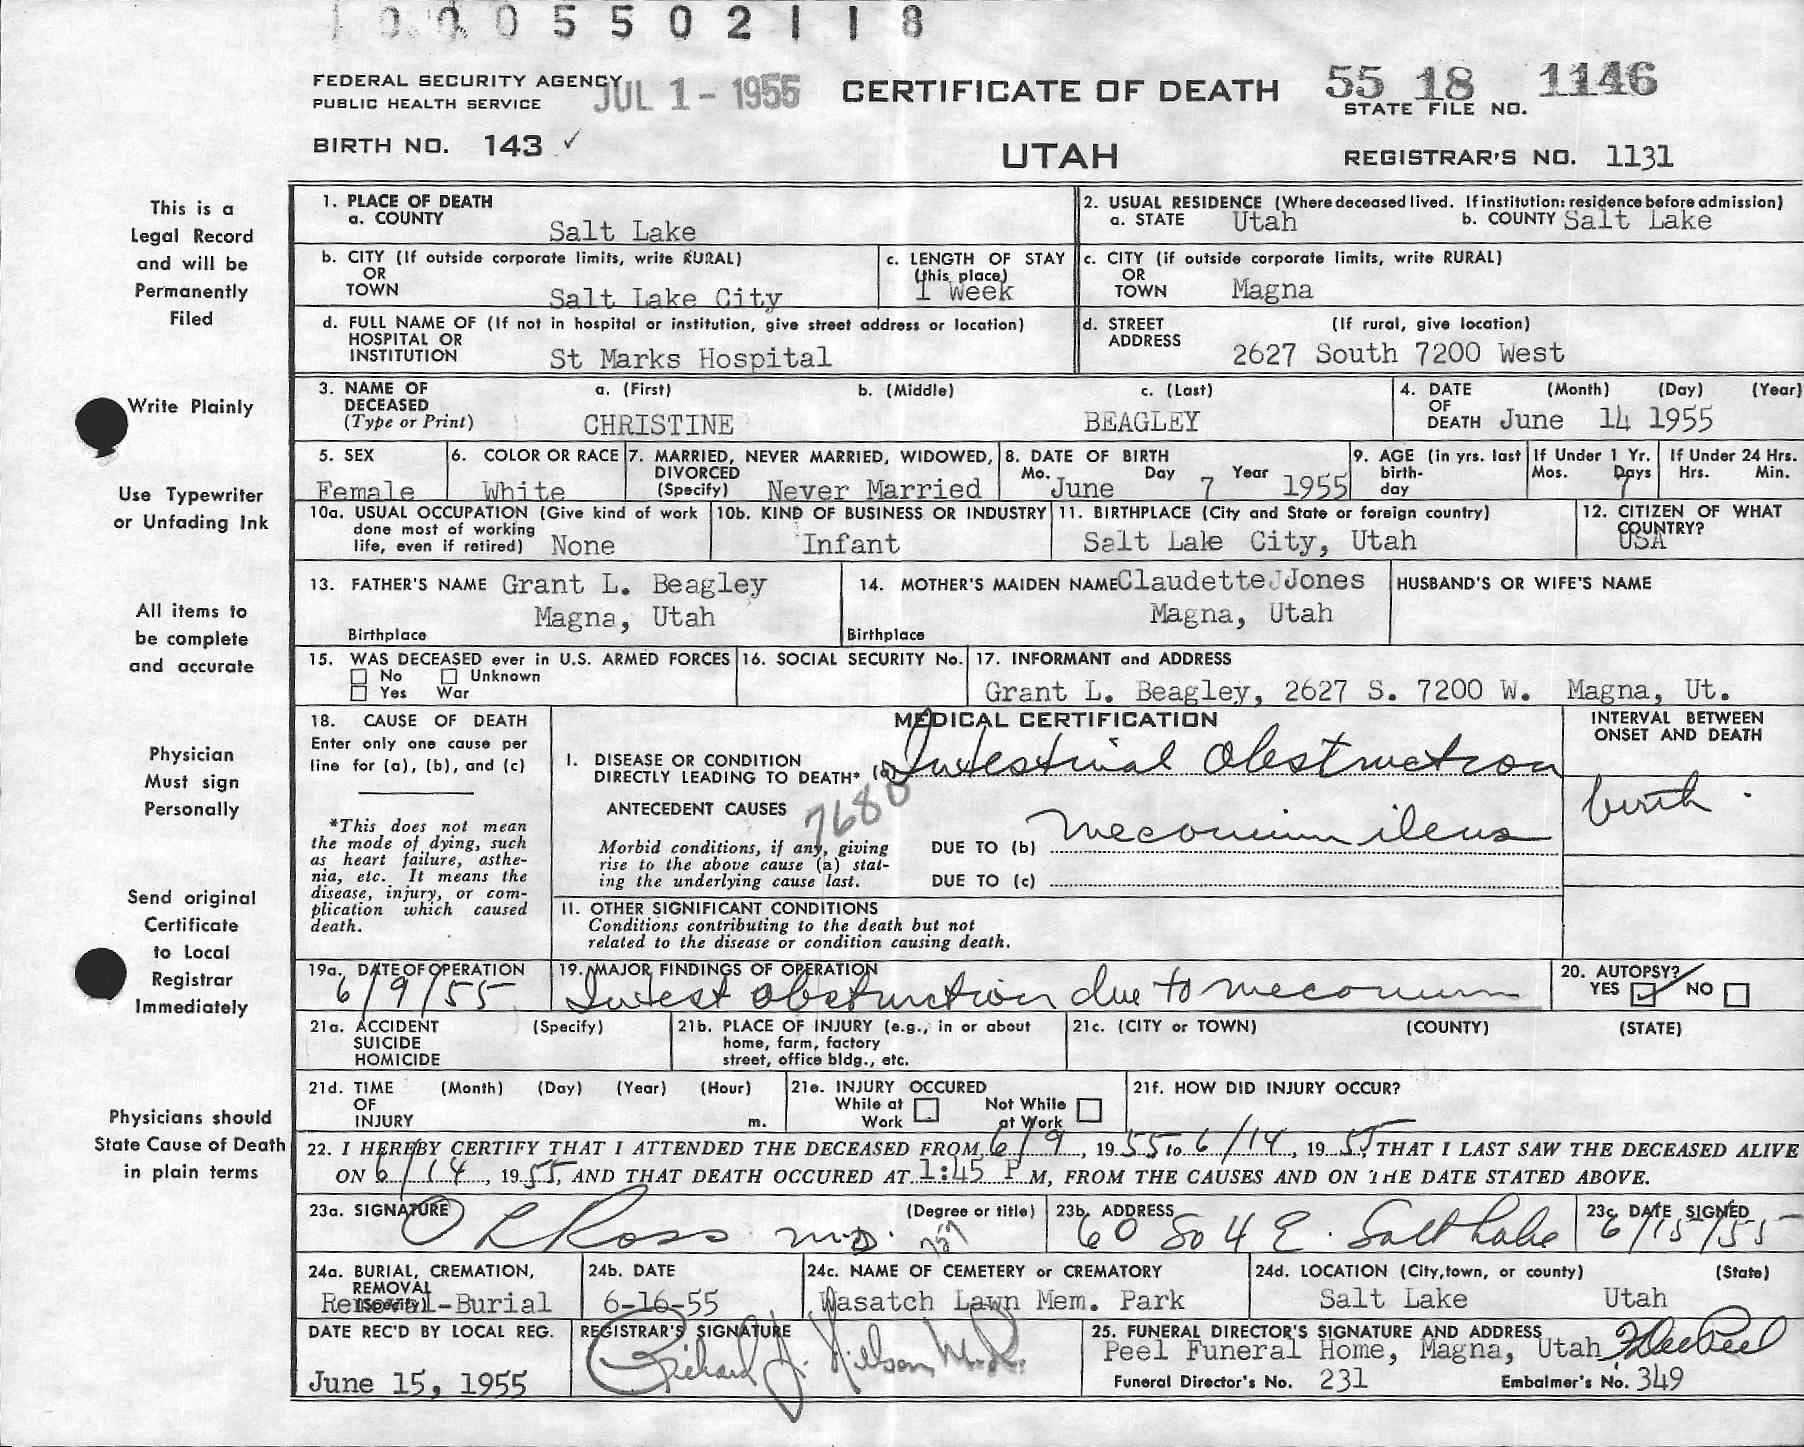 1 0 0 0 5 5 0 2 1 1 8
FEDERAL SECURITY AGENCY
PUBLIC HEALTH SERVICE
JUL 1 - 1955
CERTIFICATE OF DEATH
55 18 1146
STATE FILE NO.
BIRTH NO. 143 ✓
UTAH
REGISTRAR'S NO. 1131
This is a
Legal Record
and will be
Permanently
Filed
Write Plainly
Use Typewriter
or Unfading Ink
All items to
be complete
and accurate
Physician
Must sign
Personally
Send original
Certificate
to Local
Registrar
Immediately
Physicians should
State Cause of Death
in plain terms
1. PLACE OF DEATH
a. COUNTY
Salt Lake
2. USUAL RESIDENCE (Where deceased lived. If institution: residence before admission)
a. STATE Utah b. COUNTY Salt Lake
b. CITY (If outside corporate limits, write RURAL)
OR
TOWN
Salt Lake City
c. LENGTH OF STAY
(this place)
1 Week
c. CITY (if outside corporate limits, write RURAL)
OR
TOWN Magna
d. FULL NAME OF (If not in hospital or institution, give street address or location)
HOSPITAL OR
INSTITUTION St Marks Hospital
d. STREET (If rural, give location)
ADDRESS
2627 South 7200 West
3. NAME OF a. (First) b. (Middle) c. (Last)
DECEASED
(Type or Print) CHRISTINE BEAGLEY
4. DATE (Month) (Day) (Year)
OF
DEATH June 14 1955
5. SEX
Female
6. COLOR OR RACE
White
7. MARRIED, NEVER MARRIED, WIDOWED,
DIVORCED
(Specify) Never Married
8. DATE OF BIRTH
Mo. Day Year
June 7 1955
9. AGE (in yrs. last
birth-
day
If Under 1 Yr.
Mos. Days
7
If Under 24 Hrs.
Hrs. Min.
10a. USUAL OCCUPATION (Give kind of work
done most of working
life, even if retired) None
10b. KIND OF BUSINESS OR INDUSTRY
Infant
11. BIRTHPLACE (City and State or foreign country)
Salt Lake City, Utah
12. CITIZEN OF WHAT
COUNTRY?
USA
13. FATHER'S NAME Grant L. Beagley
Magna, Utah
Birthplace
14. MOTHER'S MAIDEN NAME Claudette J Jones
Magna, Utah
Birthplace
HUSBAND'S OR WIFE'S NAME
15. WAS DECEASED ever in U.S. ARMED FORCES
No Unknown
Yes War
16. SOCIAL SECURITY No.
17. INFORMANT and ADDRESS
Grant L. Beagley, 2627 S. 7200 W. Magna, Ut.
18. CAUSE OF DEATH
Enter only one cause per
line for (a), (b), and (c)
*This does not mean
the mode of dying, such
as heart failure, asthe-
nia, etc. It means the
disease, injury, or com-
plication which caused
death.
MEDICAL CERTIFICATION
I. DISEASE OR CONDITION
DIRECTLY LEADING TO DEATH* (a) Intestinal Obstruction
ANTECEDENT CAUSES
7680
Morbid conditions, if any, giving
rise to the above cause (a) stat-
ing the underlying cause last.
DUE TO (b) meconium ileus
DUE TO (c)
INTERVAL BETWEEN
ONSET AND DEATH
birth.
II. OTHER SIGNIFICANT CONDITIONS
Conditions contributing to the death but not
related to the disease or condition causing death.
19a. DATE OF OPERATION
6/9/55
19. MAJOR FINDINGS OF OPERATION
Intest obstruction due to meconium
20. AUTOPSY?
YES ✓ NO
21a. ACCIDENT (Specify)
SUICIDE
HOMICIDE
21b. PLACE OF INJURY (e.g., in or about
home, farm, factory
street, office bldg., etc.
21c. (CITY or TOWN) (COUNTY) (STATE)
21d. TIME (Month) (Day) (Year) (Hour)
OF
INJURY m.
21e. INJURY OCCURED
While at Not While
Work at Work
21f. HOW DID INJURY OCCUR?
22. I HEREBY CERTIFY THAT I ATTENDED THE DECEASED FROM 6/9, 1955 to 6/14, 1955, THAT I LAST SAW THE DECEASED ALIVE
ON 6/14, 1955, AND THAT DEATH OCCURED AT 1:45 P M, FROM THE CAUSES AND ON THE DATE STATED ABOVE.
23a. SIGNATURE (Degree or title)
O L Ross M.D.
23b. ADDRESS
60 So 4 E. Salt Lake
23c. DATE SIGNED
6/15/55
24a. BURIAL, CREMATION,
REMOVAL
(Specify)
Removal-Burial
24b. DATE
6-16-55
24c. NAME OF CEMETERY or CREMATORY
Wasatch Lawn Mem. Park
24d. LOCATION (City, town, or county) (State)
Salt Lake Utah
DATE REC'D BY LOCAL REG.
June 15, 1955
REGISTRAR'S SIGNATURE
Richard J. Nilson M.D.
25. FUNERAL DIRECTOR'S SIGNATURE AND ADDRESS
Peel Funeral Home, Magna, Utah
Funeral Director's No. 231 Embalmer's No. 349